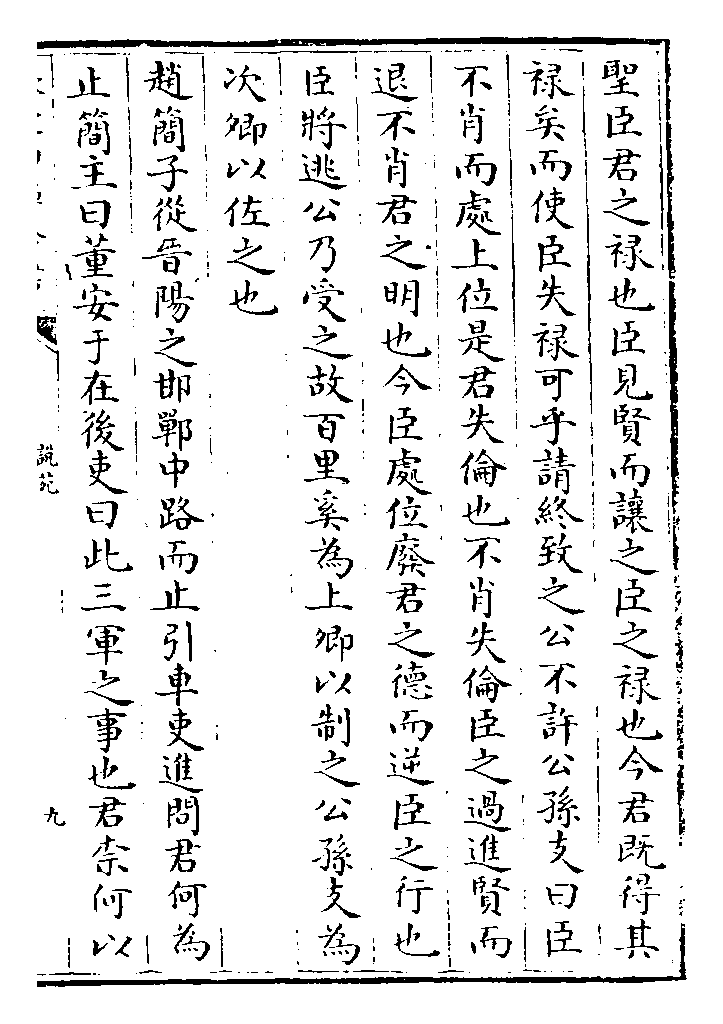 聖臣君之禄也臣見賢而讓之臣之禄也今君既得其
禄矣而使臣失禄可乎請終致之公不許公孫支曰臣
不肖而處上位是君失倫也不肖失倫臣之過進賢而
退不肖君之明也今臣處位廢君之德而逆臣之行也
臣將逃公乃受之故百里奚為上卿以制之公孫支為
次卿以佐之也
趙簡子從晉陽之邯鄲中路而止引車吏進問君何為
止簡主曰董安于在後吏曰此三軍之事也君柰何以
說苑
九